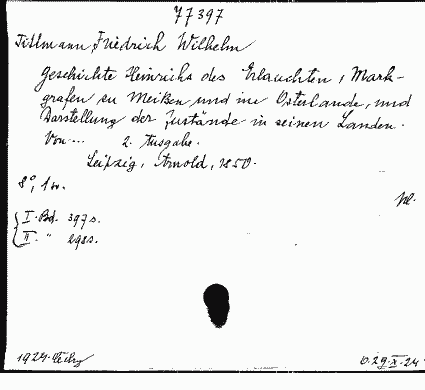 77397
Tittmann, Friedrich Wilhelm
Geschichte Heinrichs des Erlauchten, Mark-
grafen zu Meißen und im Osterlande, und
Darstellung der Zustände in seinen Landen.
Von ... 2. Ausgabe.
Leipzig, Arnold, 1850.
8°, 1 w.
I. Bd. 397 s.
II. " 298 s.
1924.
6. 29. X. 24